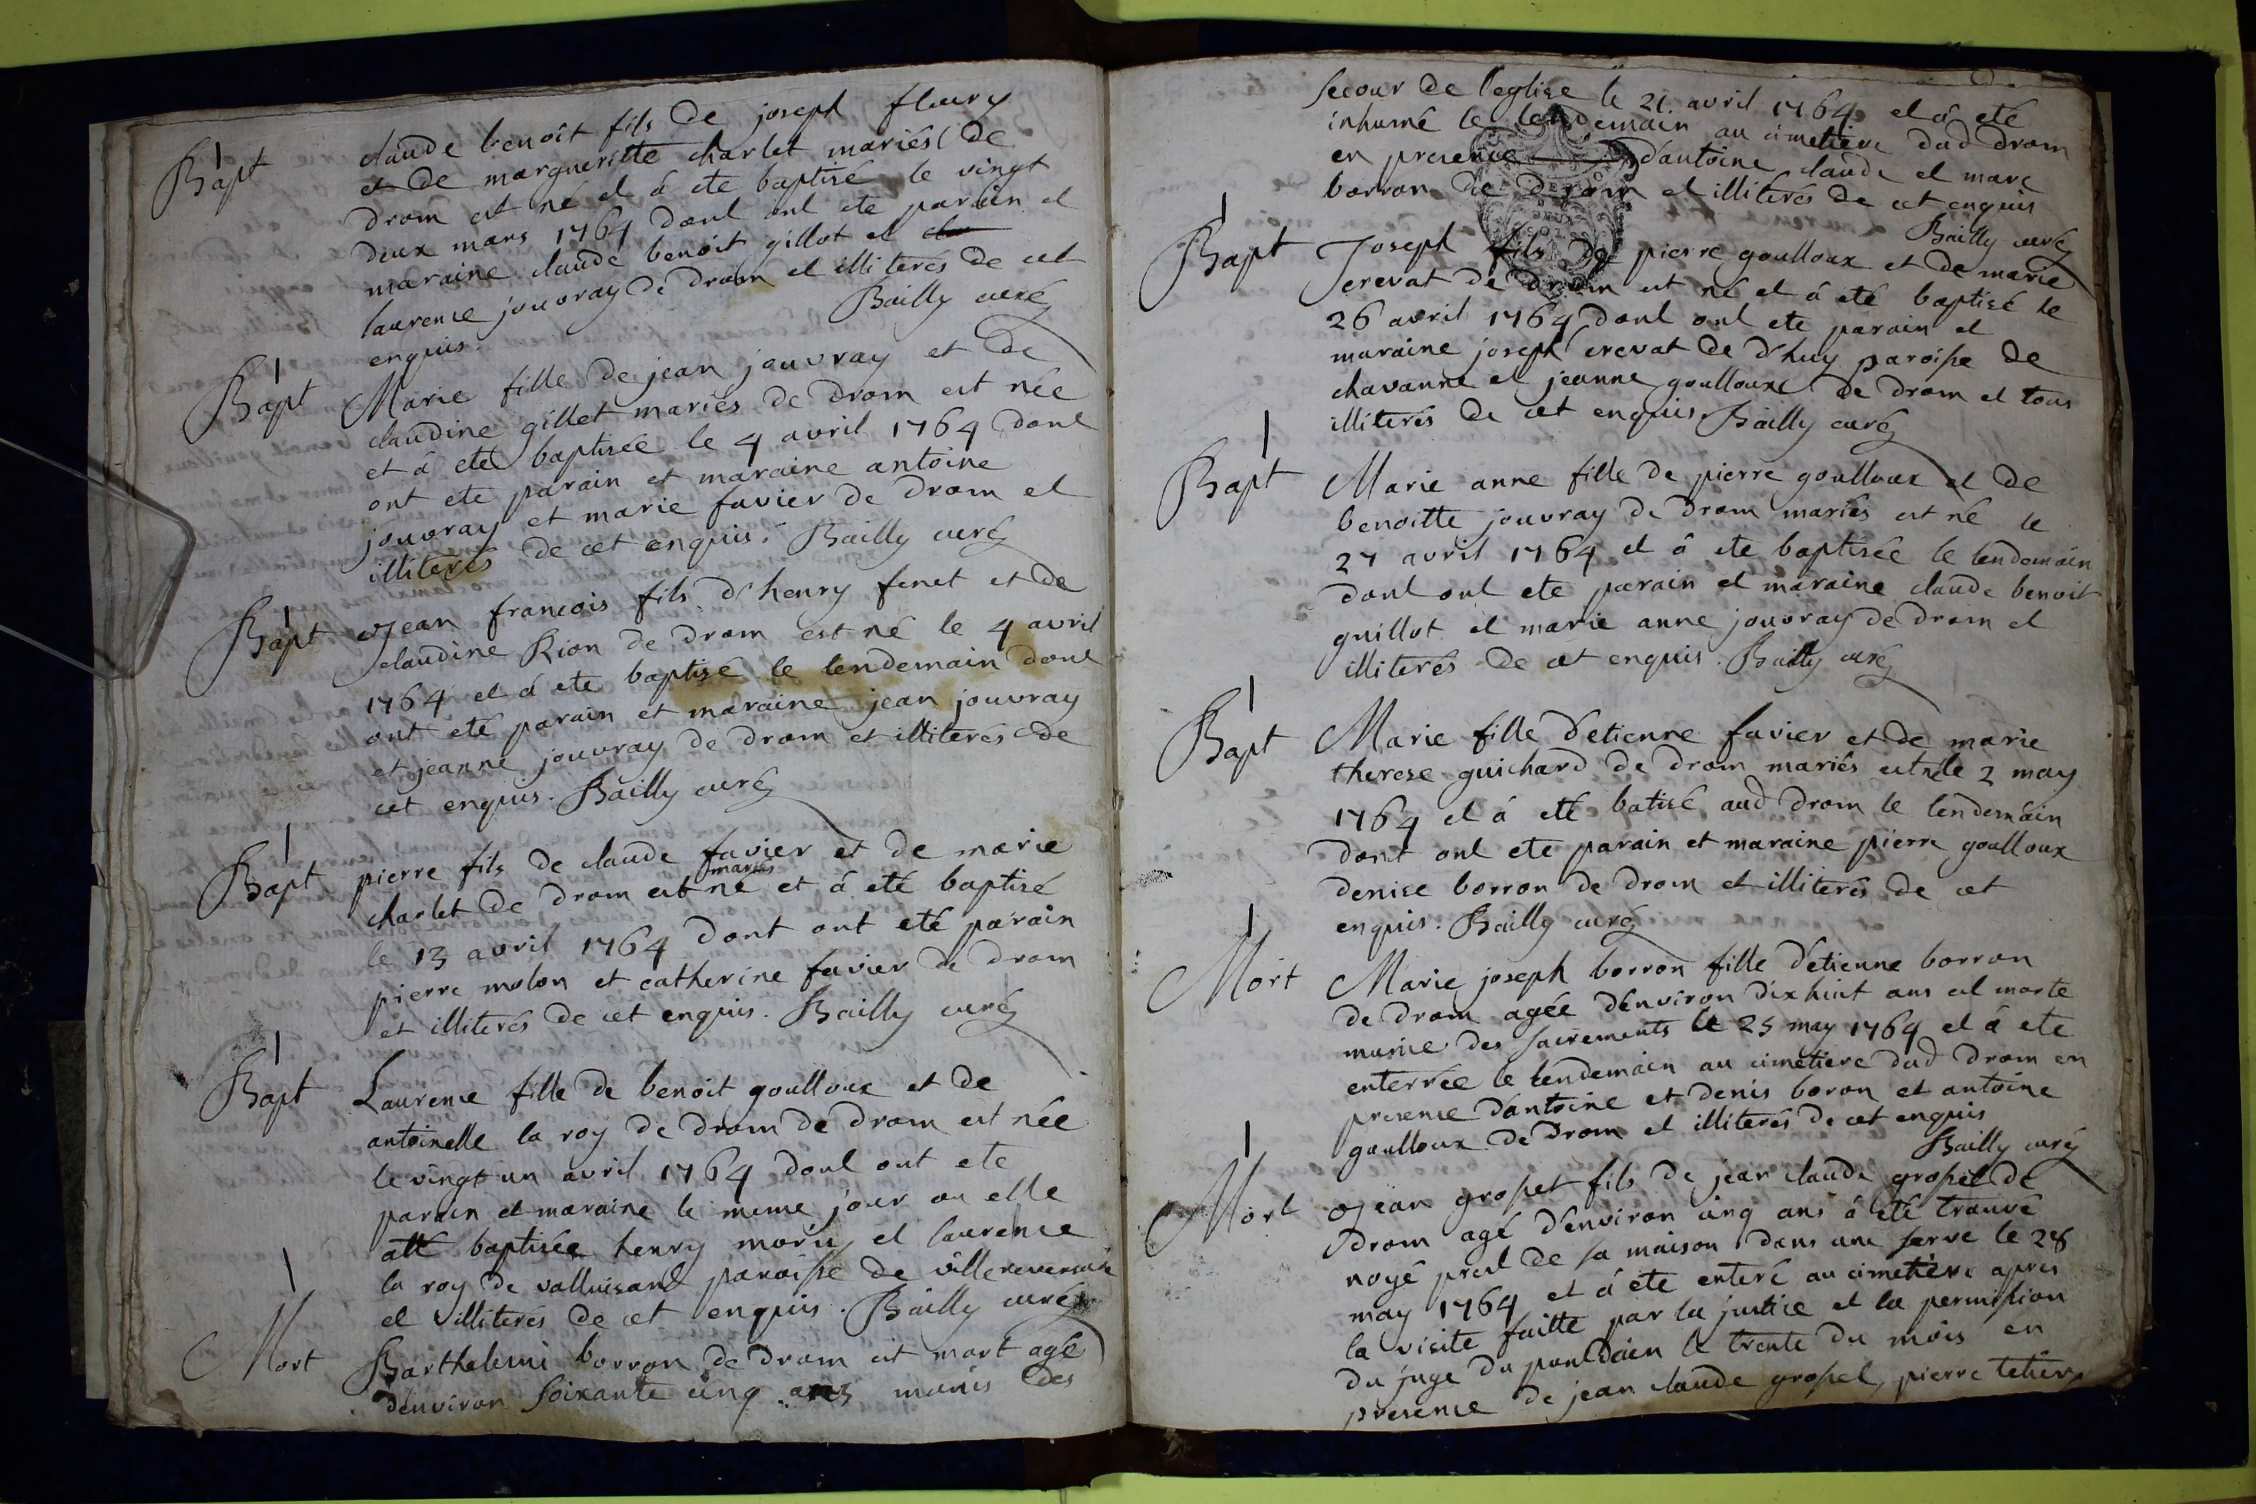 Bapt claude benoît fils de joseph fleury
et de margueritte charlet mariés de
drom est né et à ete baptisé le vingt
deux mars 1764 dont ont ete parain et
maraine claude benoit gillot et
laurence jouvray de drom et illiterés de cet
enquis. Bailly curé
Bapt Marie fille de jean jouvray et de
claudine gillet mariés de drom est née
et à eté baptisée le 4 avril 1764 dont
ont ete parain et maraine antoine
jouvray et marie favier de drom et
illiterés de cet enquis. Bailly curé
Bapt Jean francois fils d'henry fenet et de
claudine Rion de drom est né le 4 avril
1764 et à ete baptisé le lendemain dont
ont eté parain et maraine jean jouvray
et jeanne jouvray de drom et illiteres de
cet enquis. Bailly curé
Bapt pierre fils de claude favier et de marie
mariés
charlet de drom est né et à eté baptisé
le 13 avril 1764 dont ont eté parain
pierre molon et catherine favier de drom
et illiterés de cet enquis. Bailly curé
Bapt Laurence fille de benoit goulloux et de
antoinette la roy de drom de drom est née
le vingt un avril 1764 dont ont ete
parain et maraine le meme jour ou elle
baptisée henry et laurence
la roy de valluisant paroisse de villereversure
et illiterés de cet enquis. Bailly curé
Mort Barthelemi borron de drom est mort agé
d'environ soixante cinq ans munis des
secour de l'eglise le 21. avril 1764 et à eté
inhumé le lendemain au cimetiere dud drom
en presence d'antoine claude et marc
borron de drom et illiterés de cet enquis
Bailly curé
Bapt Joseph fils de pierre goulloux et de marie
crevat de drom est né et à eté baptisé le
26 avril 1764 dont ont ete parain et
maraine joseph crevat de d'huy paroisse de
chavanne et jeanne goulloux de drom et tous
illiterés de cet enquis Bailly curé
Bapt Marie anne fille de pierre goulloux et de
benoitte jouvray de drom mariés est né le
27 avril 1764 et à ete baptisée le lendemain
dont ont ete parain et maraine claude benoit
guillot et marie anne jouvray de drom et
illiterés de cet enquis. Bailly curé
Bapt Marie fille d'etienne favier et de marie
therese guichard de drom mariés est née le 2 may
1764 et à eté batisé aud drom le lendemain
dont ont ete parain et maraine pierre goulloux
denise borron de drom et illiterés de cet
enquis. Bailly curé
Mort Marie joseph borron fille d'etienne borron
de drom agée d'environ dix huit ans est morte
munie des sacrements le 25 may 1764 et à ete
enterrée le lendemain au cimetiere dud drom en
presence d'antoine et denis boron et antoine
goulloux de drom et illiterés de cet enquis
Bailly curé
Mort Jean grospet fils de jean claude grospet de
drom agé d'environ cinq ans à eté trouvé
noyé prest de sa maison dans une serve le 28
may 1764 et à ete enteré au cimetiere apres
la visite faitte par la justice et la permission
du juge du pont dain le trente du mois en
presence de jean claude grospet, pierre